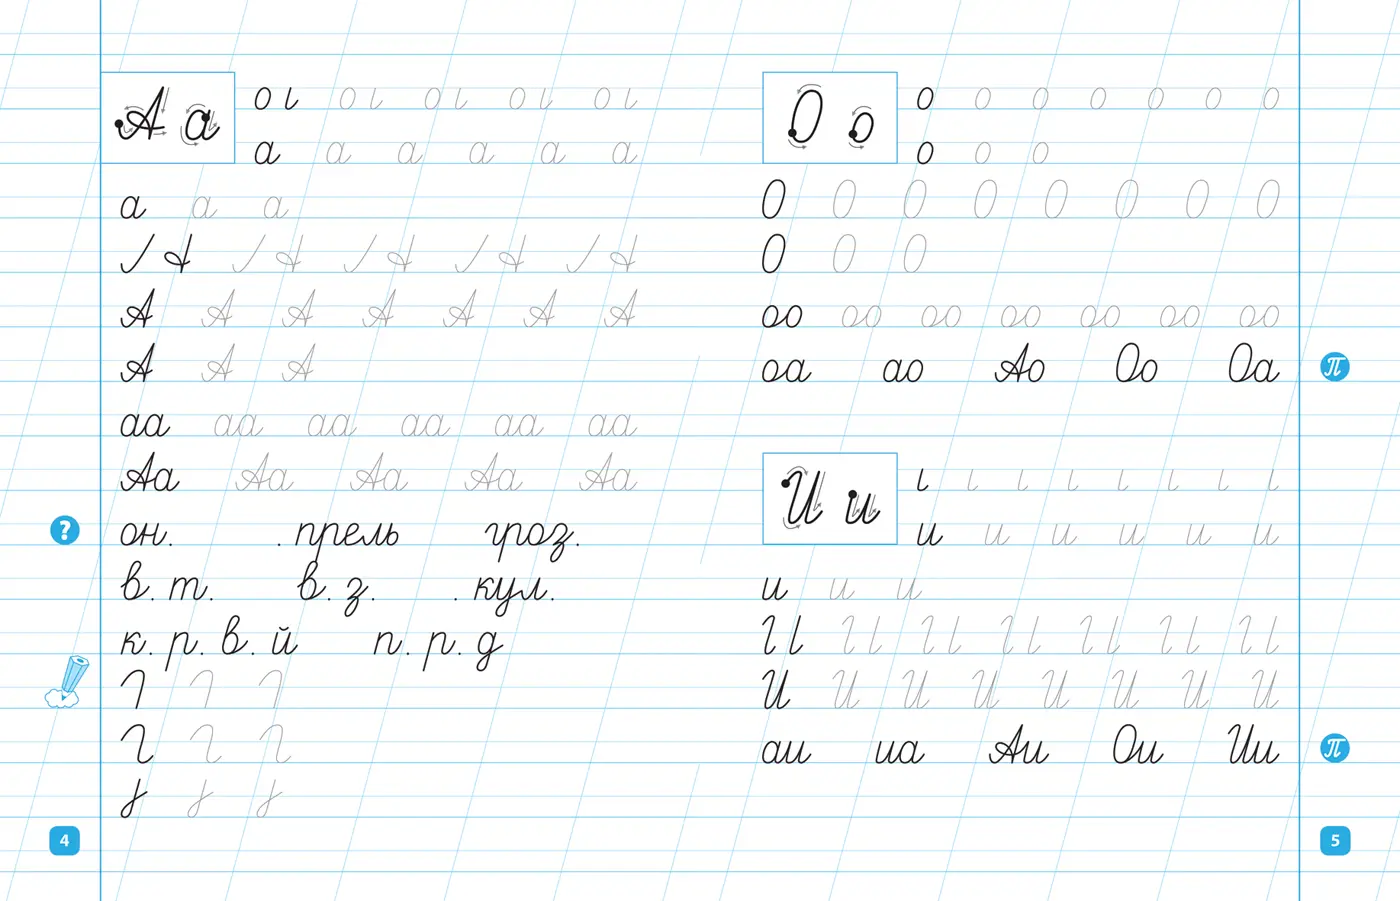 А а
о ι о ι о ι о ι о ι
а а а а а а
а а а
А А А А А А А
А А А
аа аа аа аа аа аа
Аа Аа Аа Аа Аа
?
он. .прель гроз.
в.т. в.з. .кул.
к.р.в.й п.р.д
4
О о
о о о о о о о
о о о
О О О О О О О О
О О О
оо оо оо оо оо оо оо
оа ао Ао Оо Оа
π
И и
и и и и и и
и и и
И И И И И И И И
аи иа Аи Ои Ии
π
5